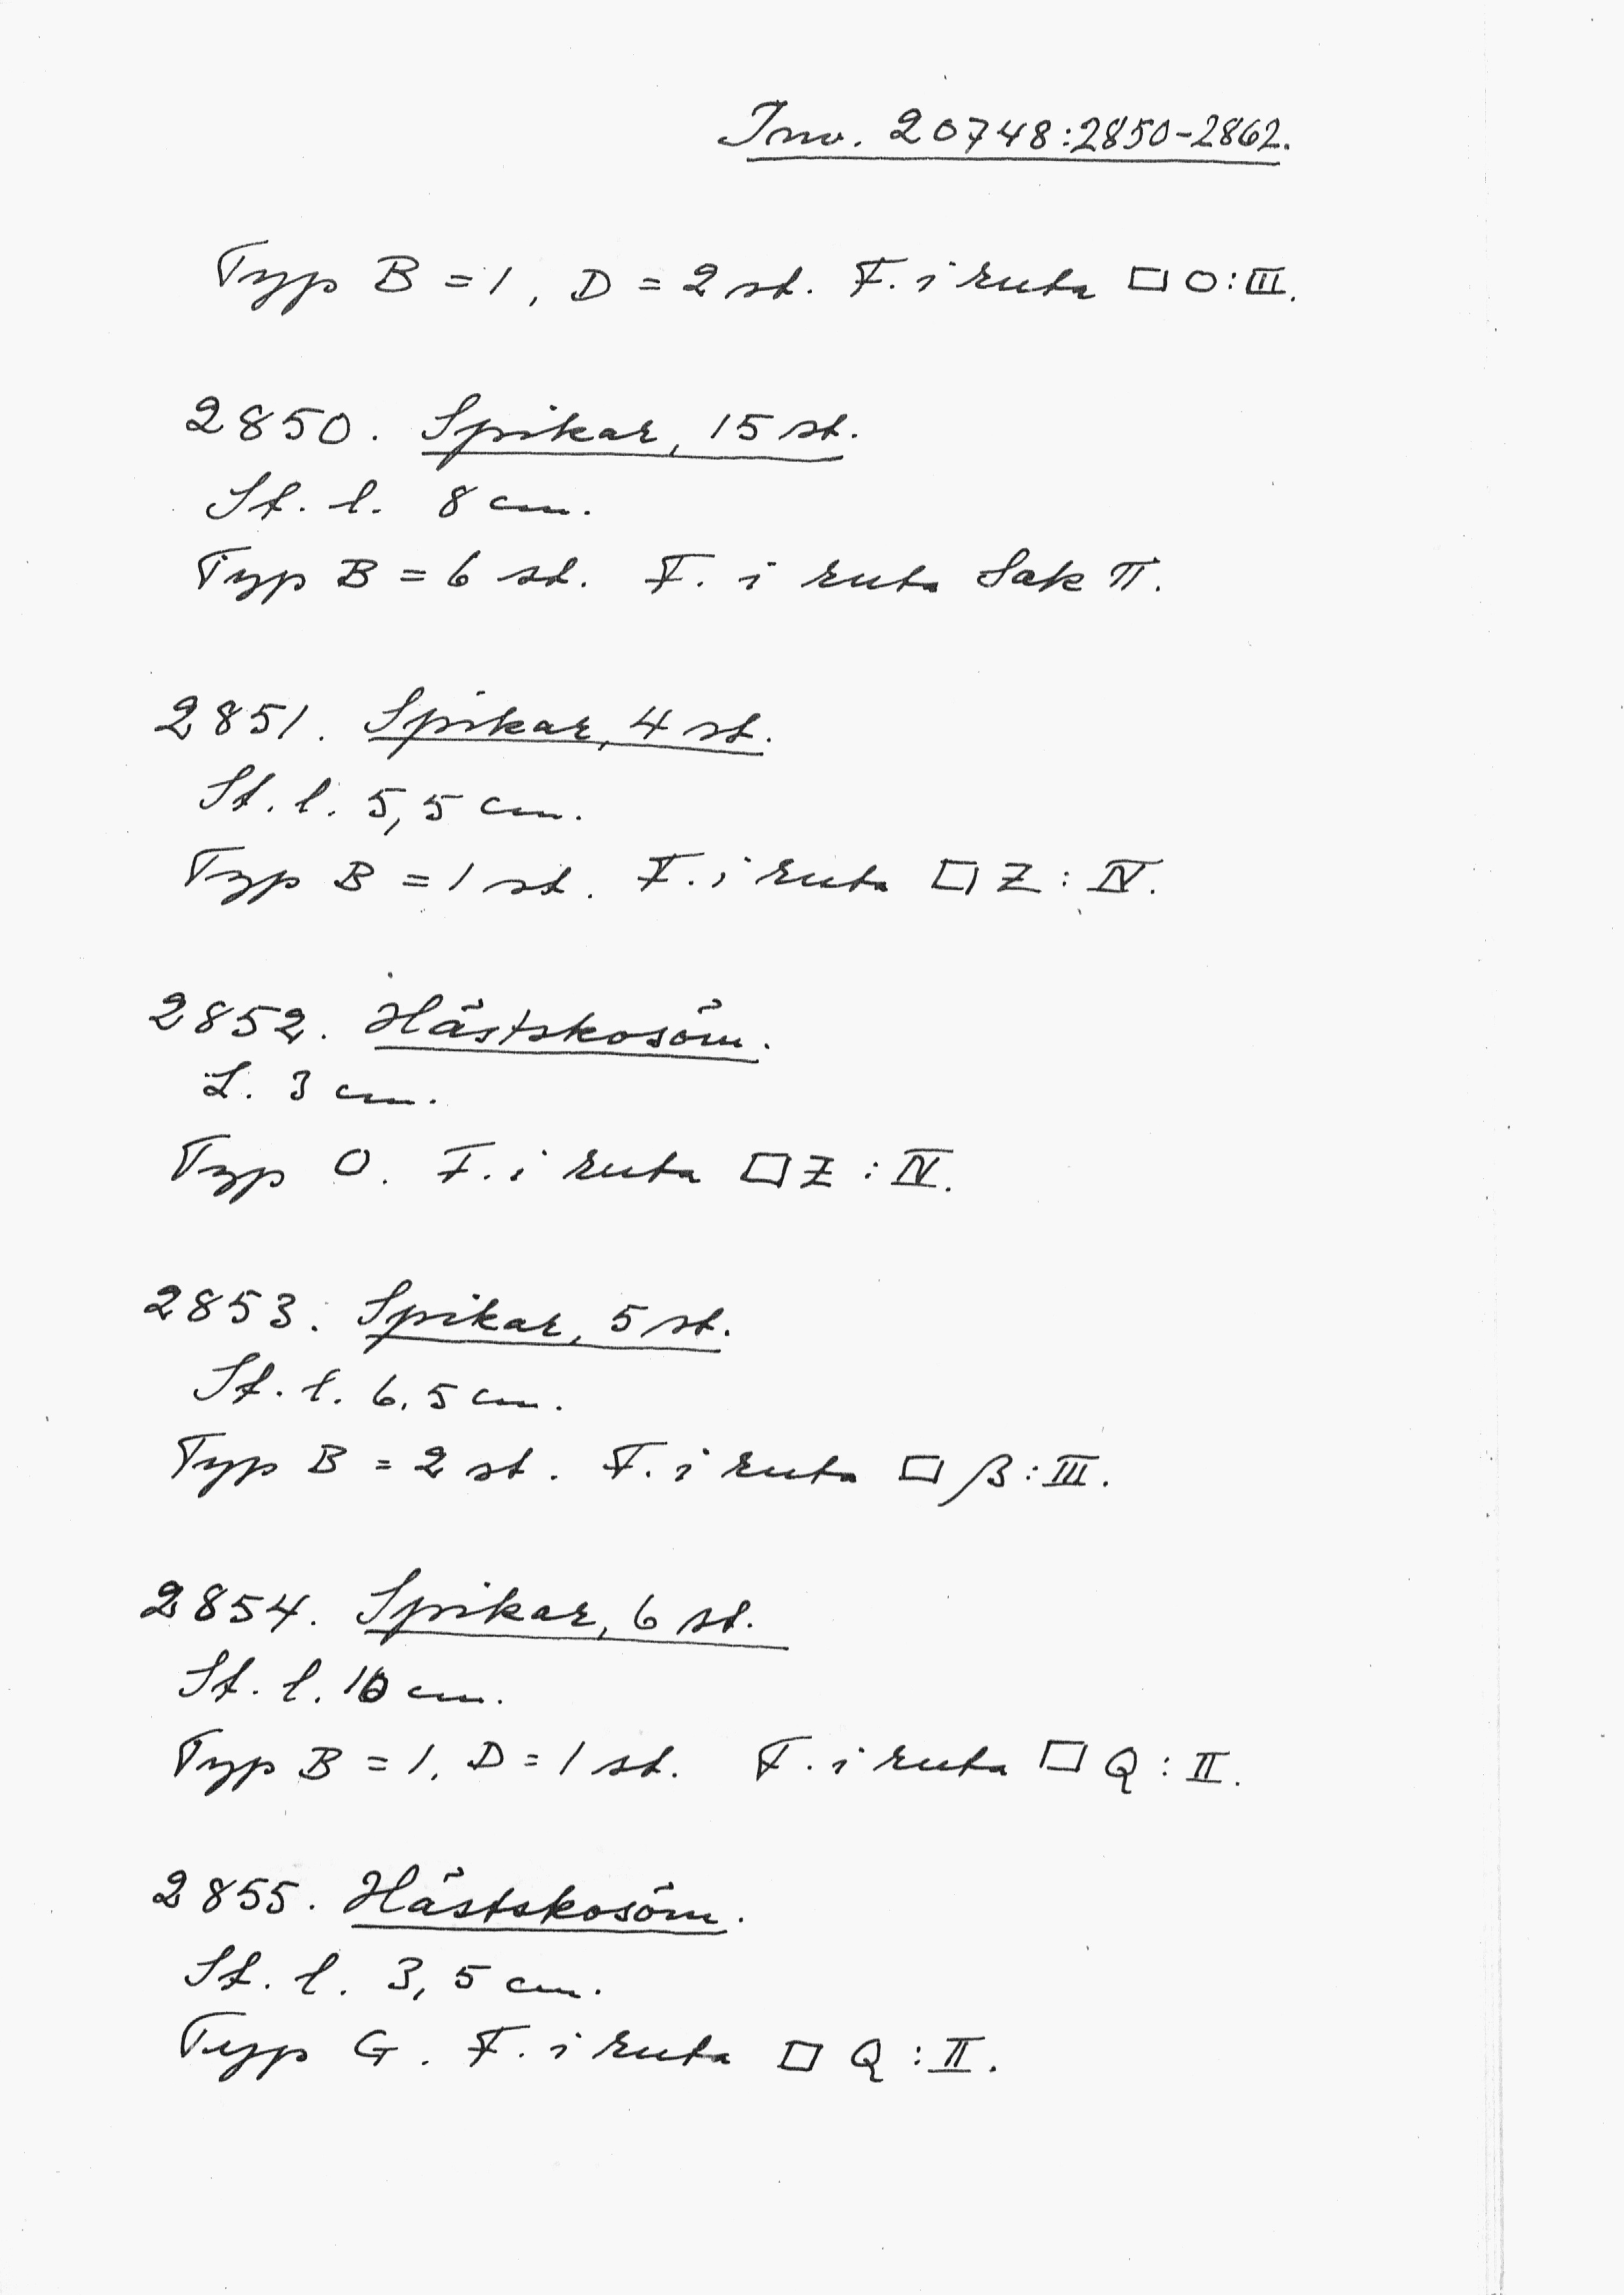 Inv. 20748:2850-2862.
Typ B = 1, D = 2 st. F. i ruta □ O:III.
2850. Spikar, 15 st.
St. l. 8 cm.
Typ B = 6 st. F. i ruta Sak π.
2851. Spikar, 4 st.
St. l. 5,5 cm.
Typ B = 1 st. F. i ruta □ Z : IV.
2852. Hästskosöm.
L. 3 cm.
Typ O. F. i ruta □ Z : IV.
2853. Spikar, 5 st.
St. l. 6,5 cm.
Typ B = 2 st. F. i ruta □ β : III.
2854. Spikar, 6 st.
St. l. 10 cm.
Typ B = 1, D = 1 st. F. i ruta □ Q : II.
2855. Hästskosöm.
St. l. 3,5 cm.
Typ G. F. i ruta □ Q : II.